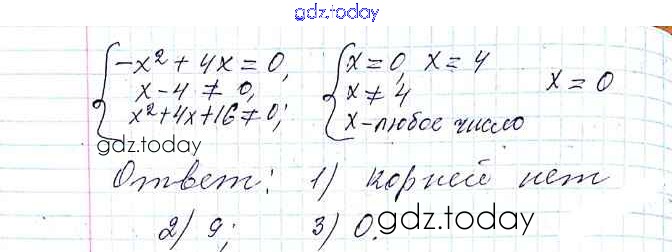 gdz.today
-x² + 4x = 0, x = 0, x = 4
x - 4 ≠ 0, x ≠ 4 x = 0
x² + 4x + 16 ≠ 0; x - любое число
gdz.today
Ответ: 1) корней нет
2) 9; 3) 0.
gdz.today